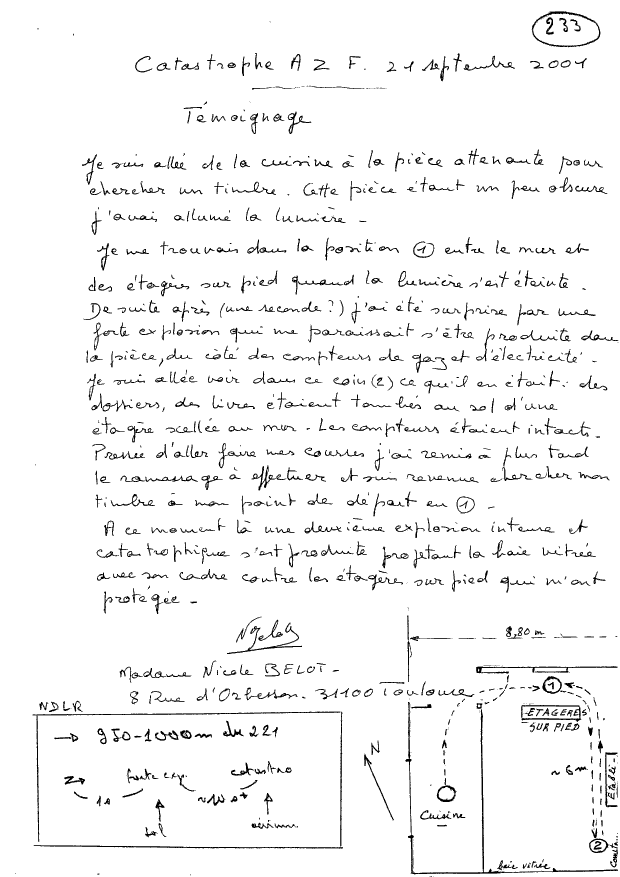 233
Catastrophe A Z F. 21 septembre 2001
Témoignage
Je suis allée de la cuisine à la pièce attenante pour
chercher un timbre. Cette pièce étant un peu obscure
j'avais allumé la lumière -
Je me trouvais dans la position ① entre le mur et
des étagères sur pied quand la lumière s'est éteinte.
De suite après (une seconde ?) j'ai été surprise par une
forte explosion qui me paraissait s'être produite dans
la pièce, du côté des compteurs de gaz et d'électricité -
Je suis allée voir dans ce coin (2) ce qu'il en était : des
dossiers, des livres étaient tombés au sol d'une
étagère scellée au mur. Les compteurs étaient intacts.
Pressée d'aller faire mes courses j'ai remis à plus tard
le ramassage à effectuer et suis revenue chercher mon
timbre à mon point de départ en ① -
A ce moment là une deuxième explosion intense et
catastrophique s'est produite projetant la baie vitrée
avec son cadre contre les étagères sur pied qui m'ont
protégée -
8,80 m
Madame Nicole BELOT -
8 Rue d'Orbesson. 31100 Toulouse
NDLR
→ 950-1000m du 221
forte exp. catastro
sol
N
Cuisine
①
ETAGERES
SUR PIED
~ 6 m
Etabli
②
baie vitrée